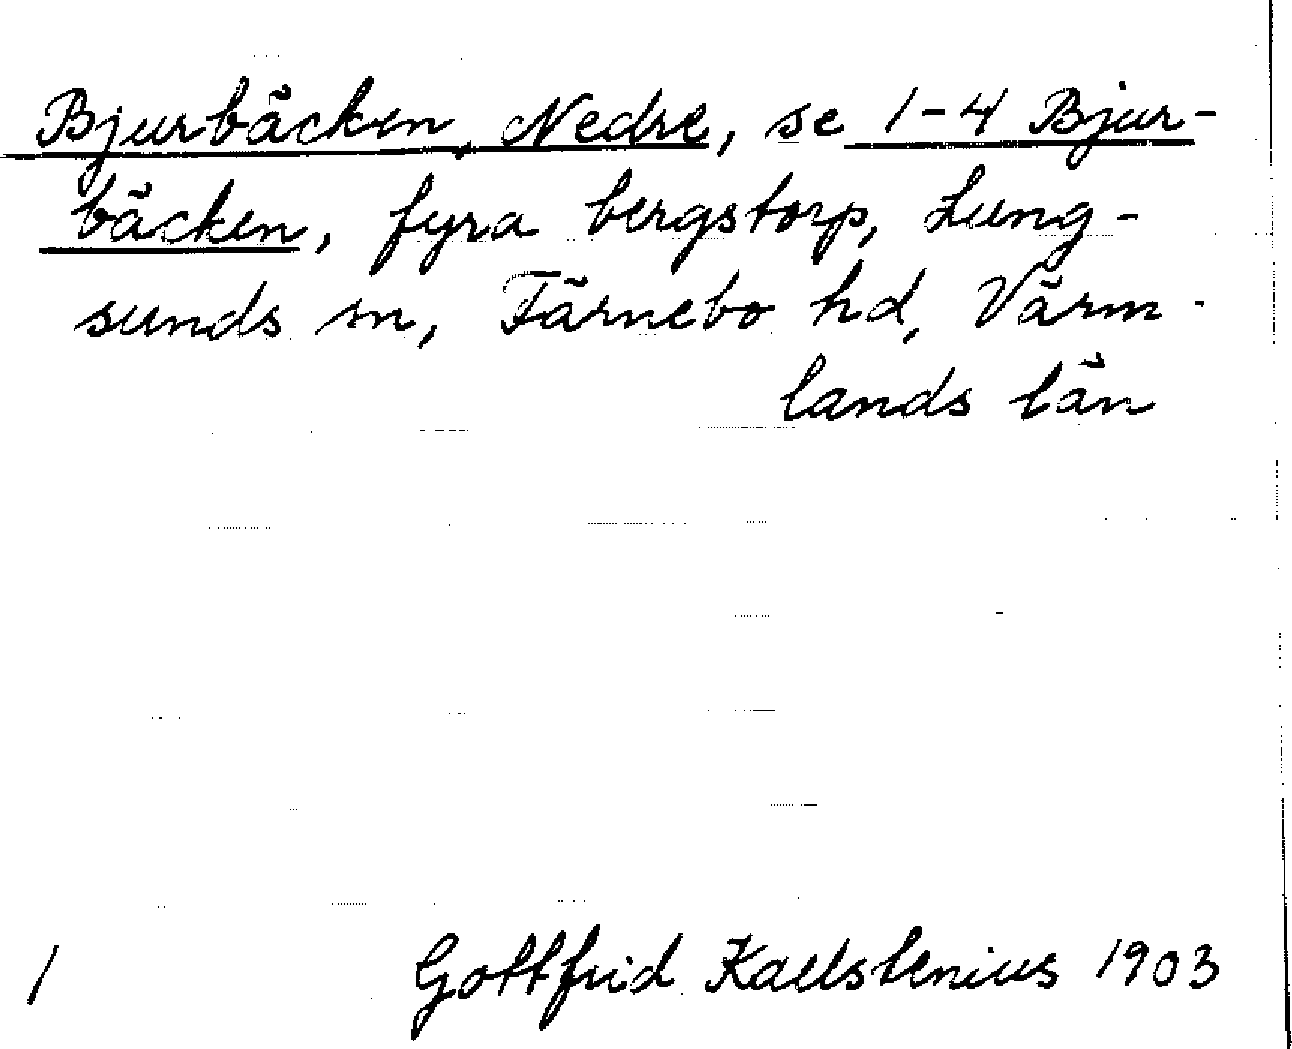 Bjurbäcken, Nedre, se 1-4 Bjur-
bäcken, fyra bergstorp, Lung-
sunds sn, Färnebo hd, Värm-
lands län
1 Gottfrid Kallstenius 1903